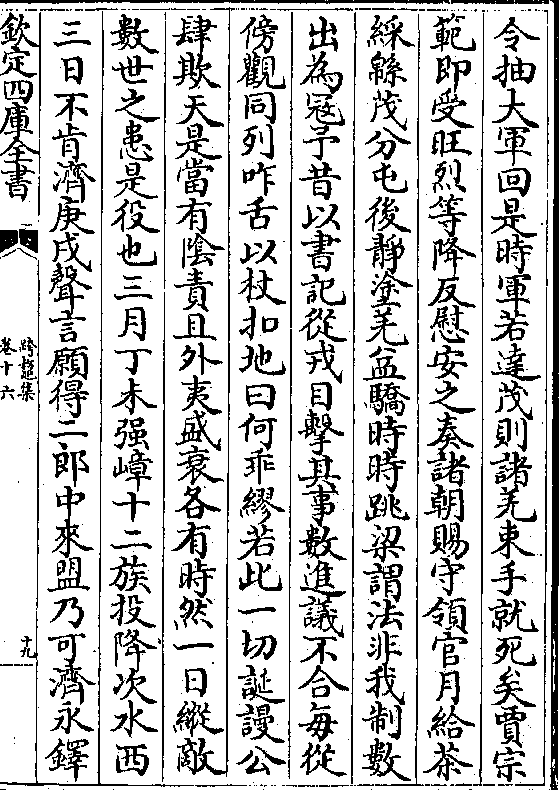 令抽大軍回是時軍若達茂則諸羌束手就死矣賈宗
範即受旺烈等降反慰安之奏諸朝賜守領官月給茶
綵緜茂分屯後靜塗羌益驕時時跳梁謂法非我制數
出為冦予昔以書記從戎目擊其事數進議不合每從
傍觀同列咋舌以杖扣地曰何乖繆若此一切誕謾公
肆欺天是當有陰責且外夷盛衰各有時然一日縱敵
數世之患是役也三月丁未强嶂十二族投降次水西
三日不肯濟庚戌聲言願得二郎中來盟乃可濟永鐸
欽定四庫全書
跨鼇集
卷十六
十九